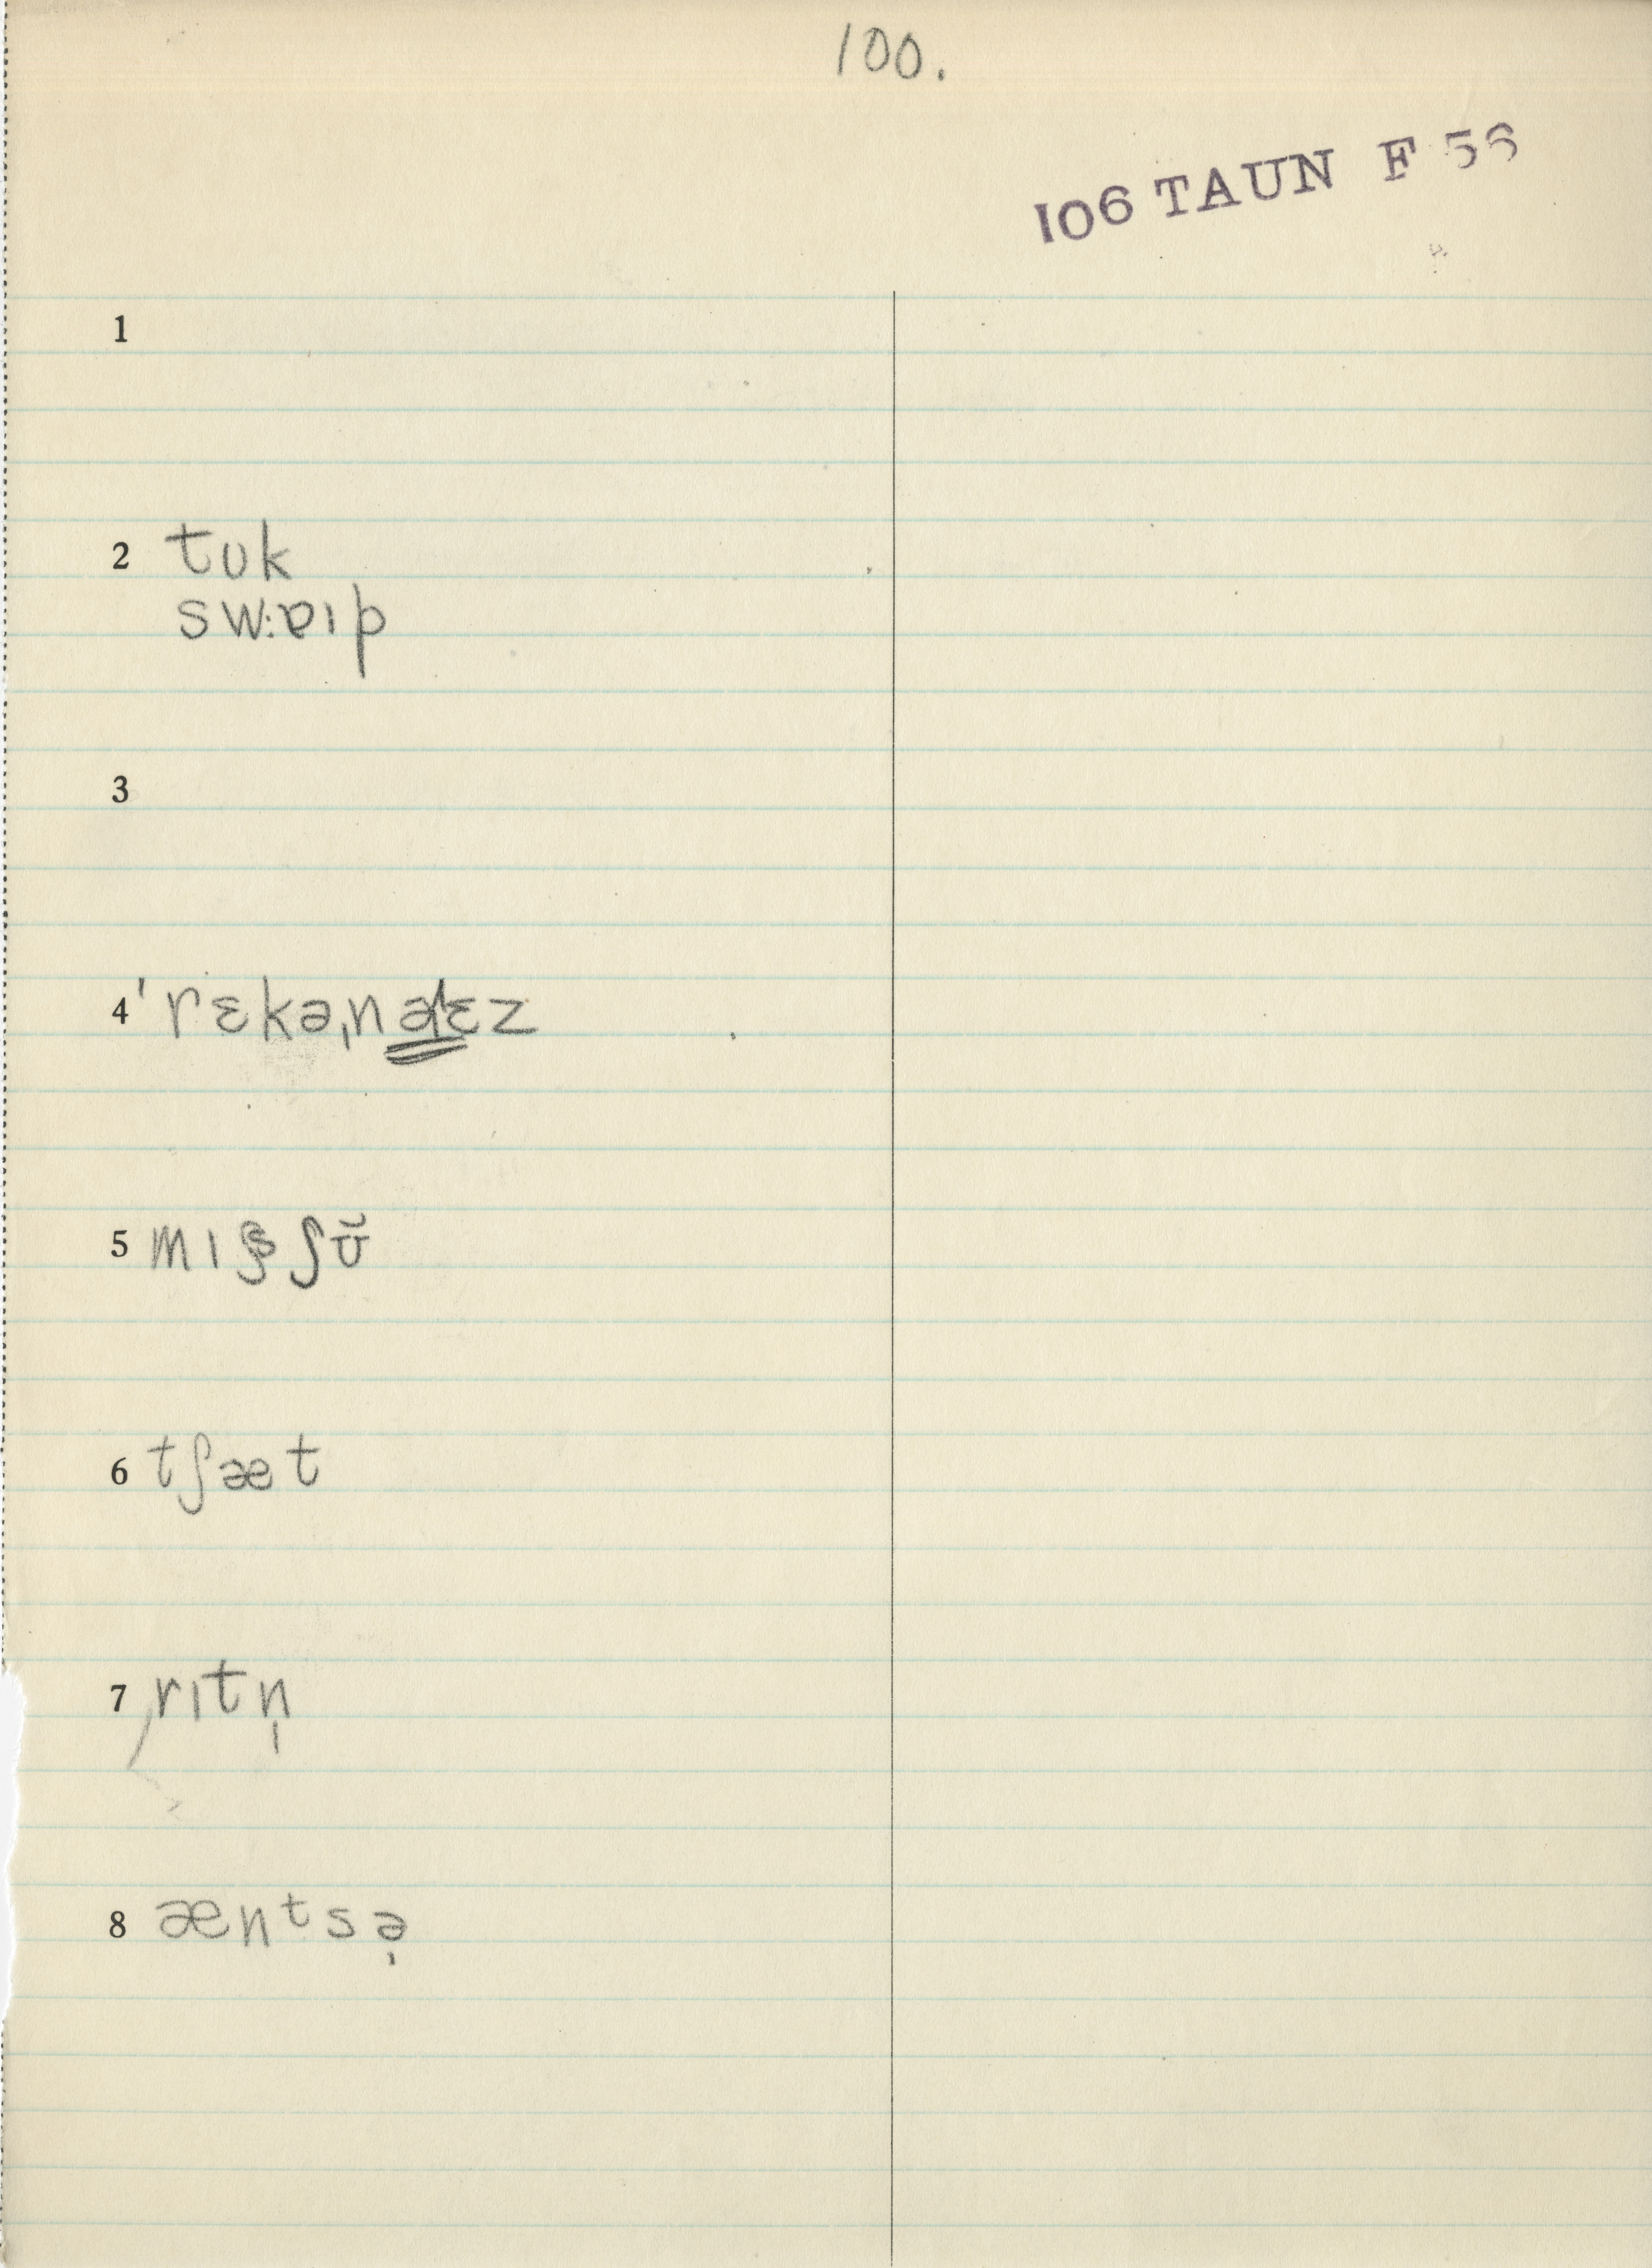 100.
106 TAUN F 56
1
2 tʊk
sw:ɐıp
3
4 ˈrɛkəˌnaɪɛz
5 mıʂ ʃʊ̆
6 tʃæt
7 rıtn̩
8 æntsə̩